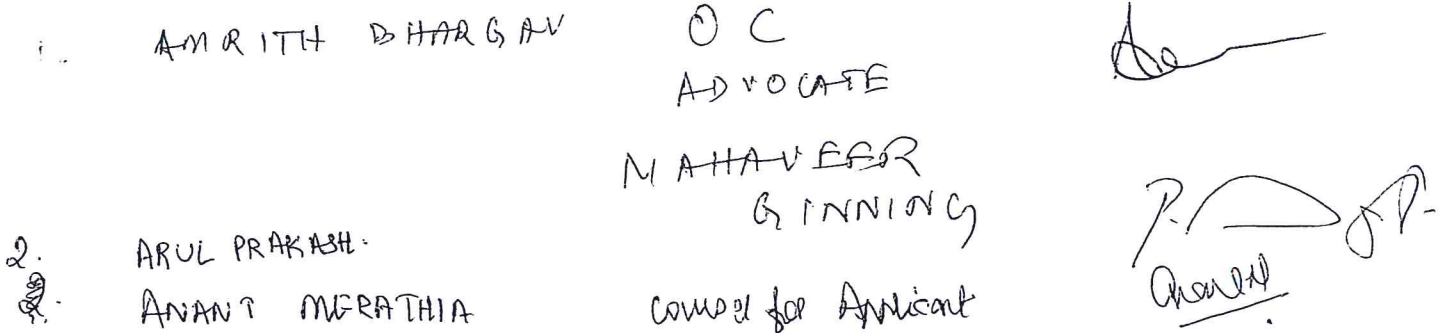 1. AMRITH BHARGAV OC
ADVOCATE
MAHAVEER
GINNING
2. ARUL PRAKASH.
ANANT MERATHIA Counsel for Applicant